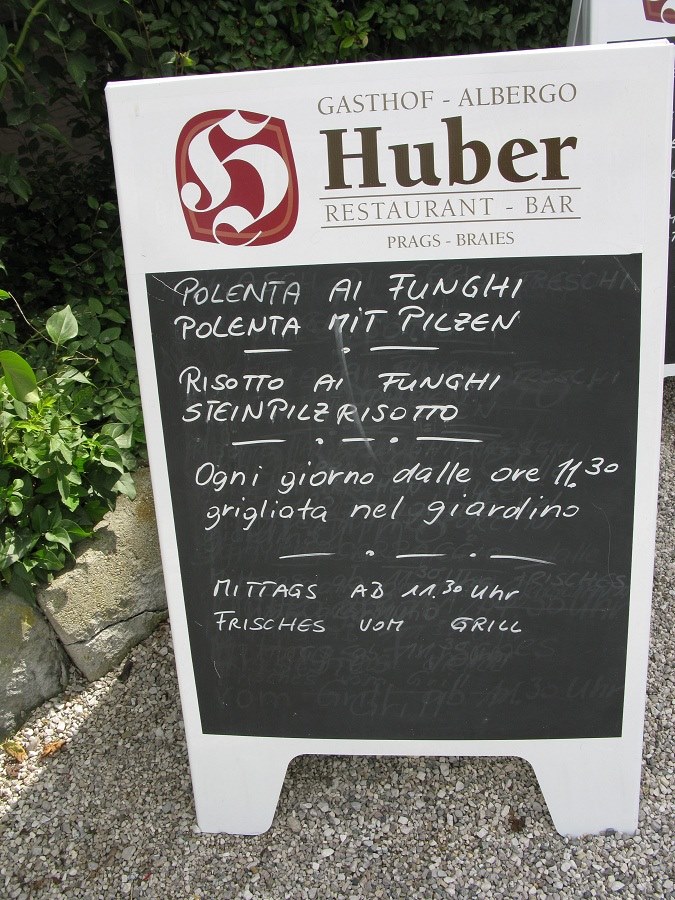 GASTHOF - ALBERGO
Huber
RESTAURANT - BAR
PRAGS - BRAIES
POLENTA AI FUNGHI
POLENTA MIT PILZEN
RISOTTO AI FUNGHI
STEINPILZRISOTTO
Ogni giorno dalle ore 11.30
grigliata nel giardino
MITTAGS AB 11.30 Uhr
FRISCHES VOM GRILL